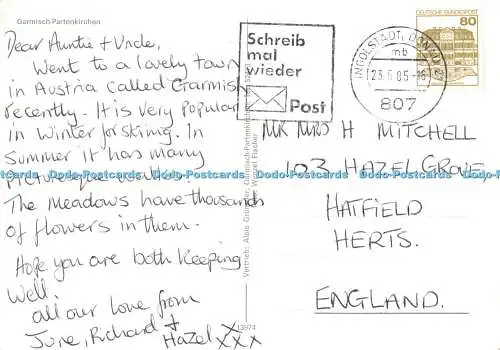 Garmisch-Partenkirchen
Dear Auntie & Uncle,
Went to a lovely town
in Austria called Garmish
recently. It is very popular
in Winter for skiing. In
summer it has many
picturesque walks.
The Meadows have thousands
of flowers in them.
Hope you are both keeping
Well.
all our love from
June, Richard &
Hazel xxxx
Schreib
mal
wieder
Post
INGOLSTADT, DONAU
mb
23.6.85-16
807
DEUTSCHE BUNDESPOST
80
MR MRS H MITCHELL
103 HAZEL GROVE
HATFIELD
HERTS.
ENGLAND.
13974
Dodo-Postcards Dodo-Postcards Dodo-Postcards Dodo-Postcards Dodo-Postcards Dodo-Postcards